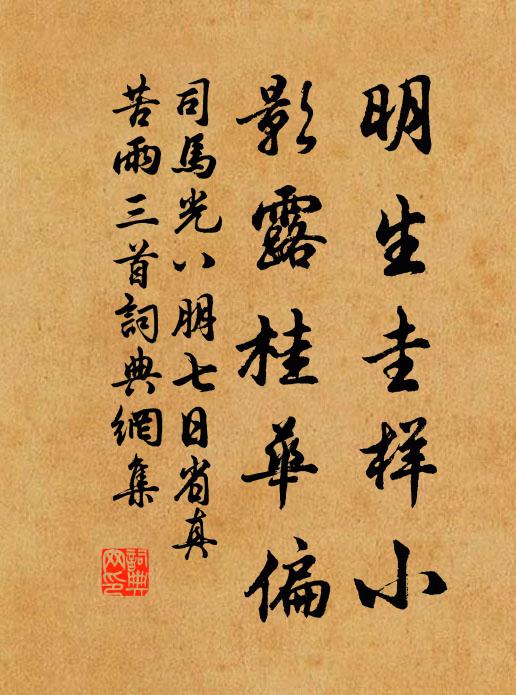 明生圭样小
影露桂華偏
司馬光八朋七日省真
苦雨三首詞典網集
詞典網印